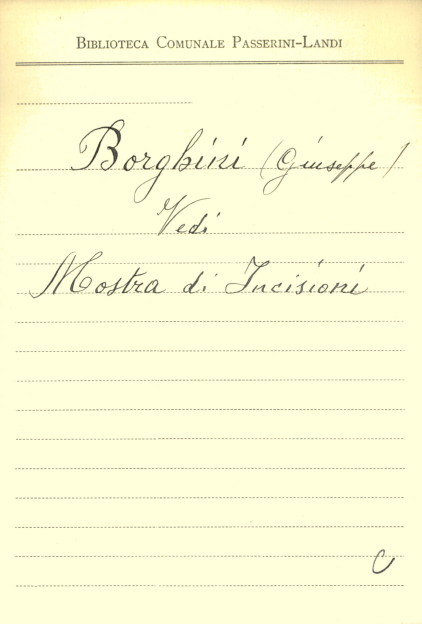 BIBLIOTECA COMUNALE PASSERINI-LANDI
Borghini (Giuseppe)
Vedi
Mostra di Incisioni
C